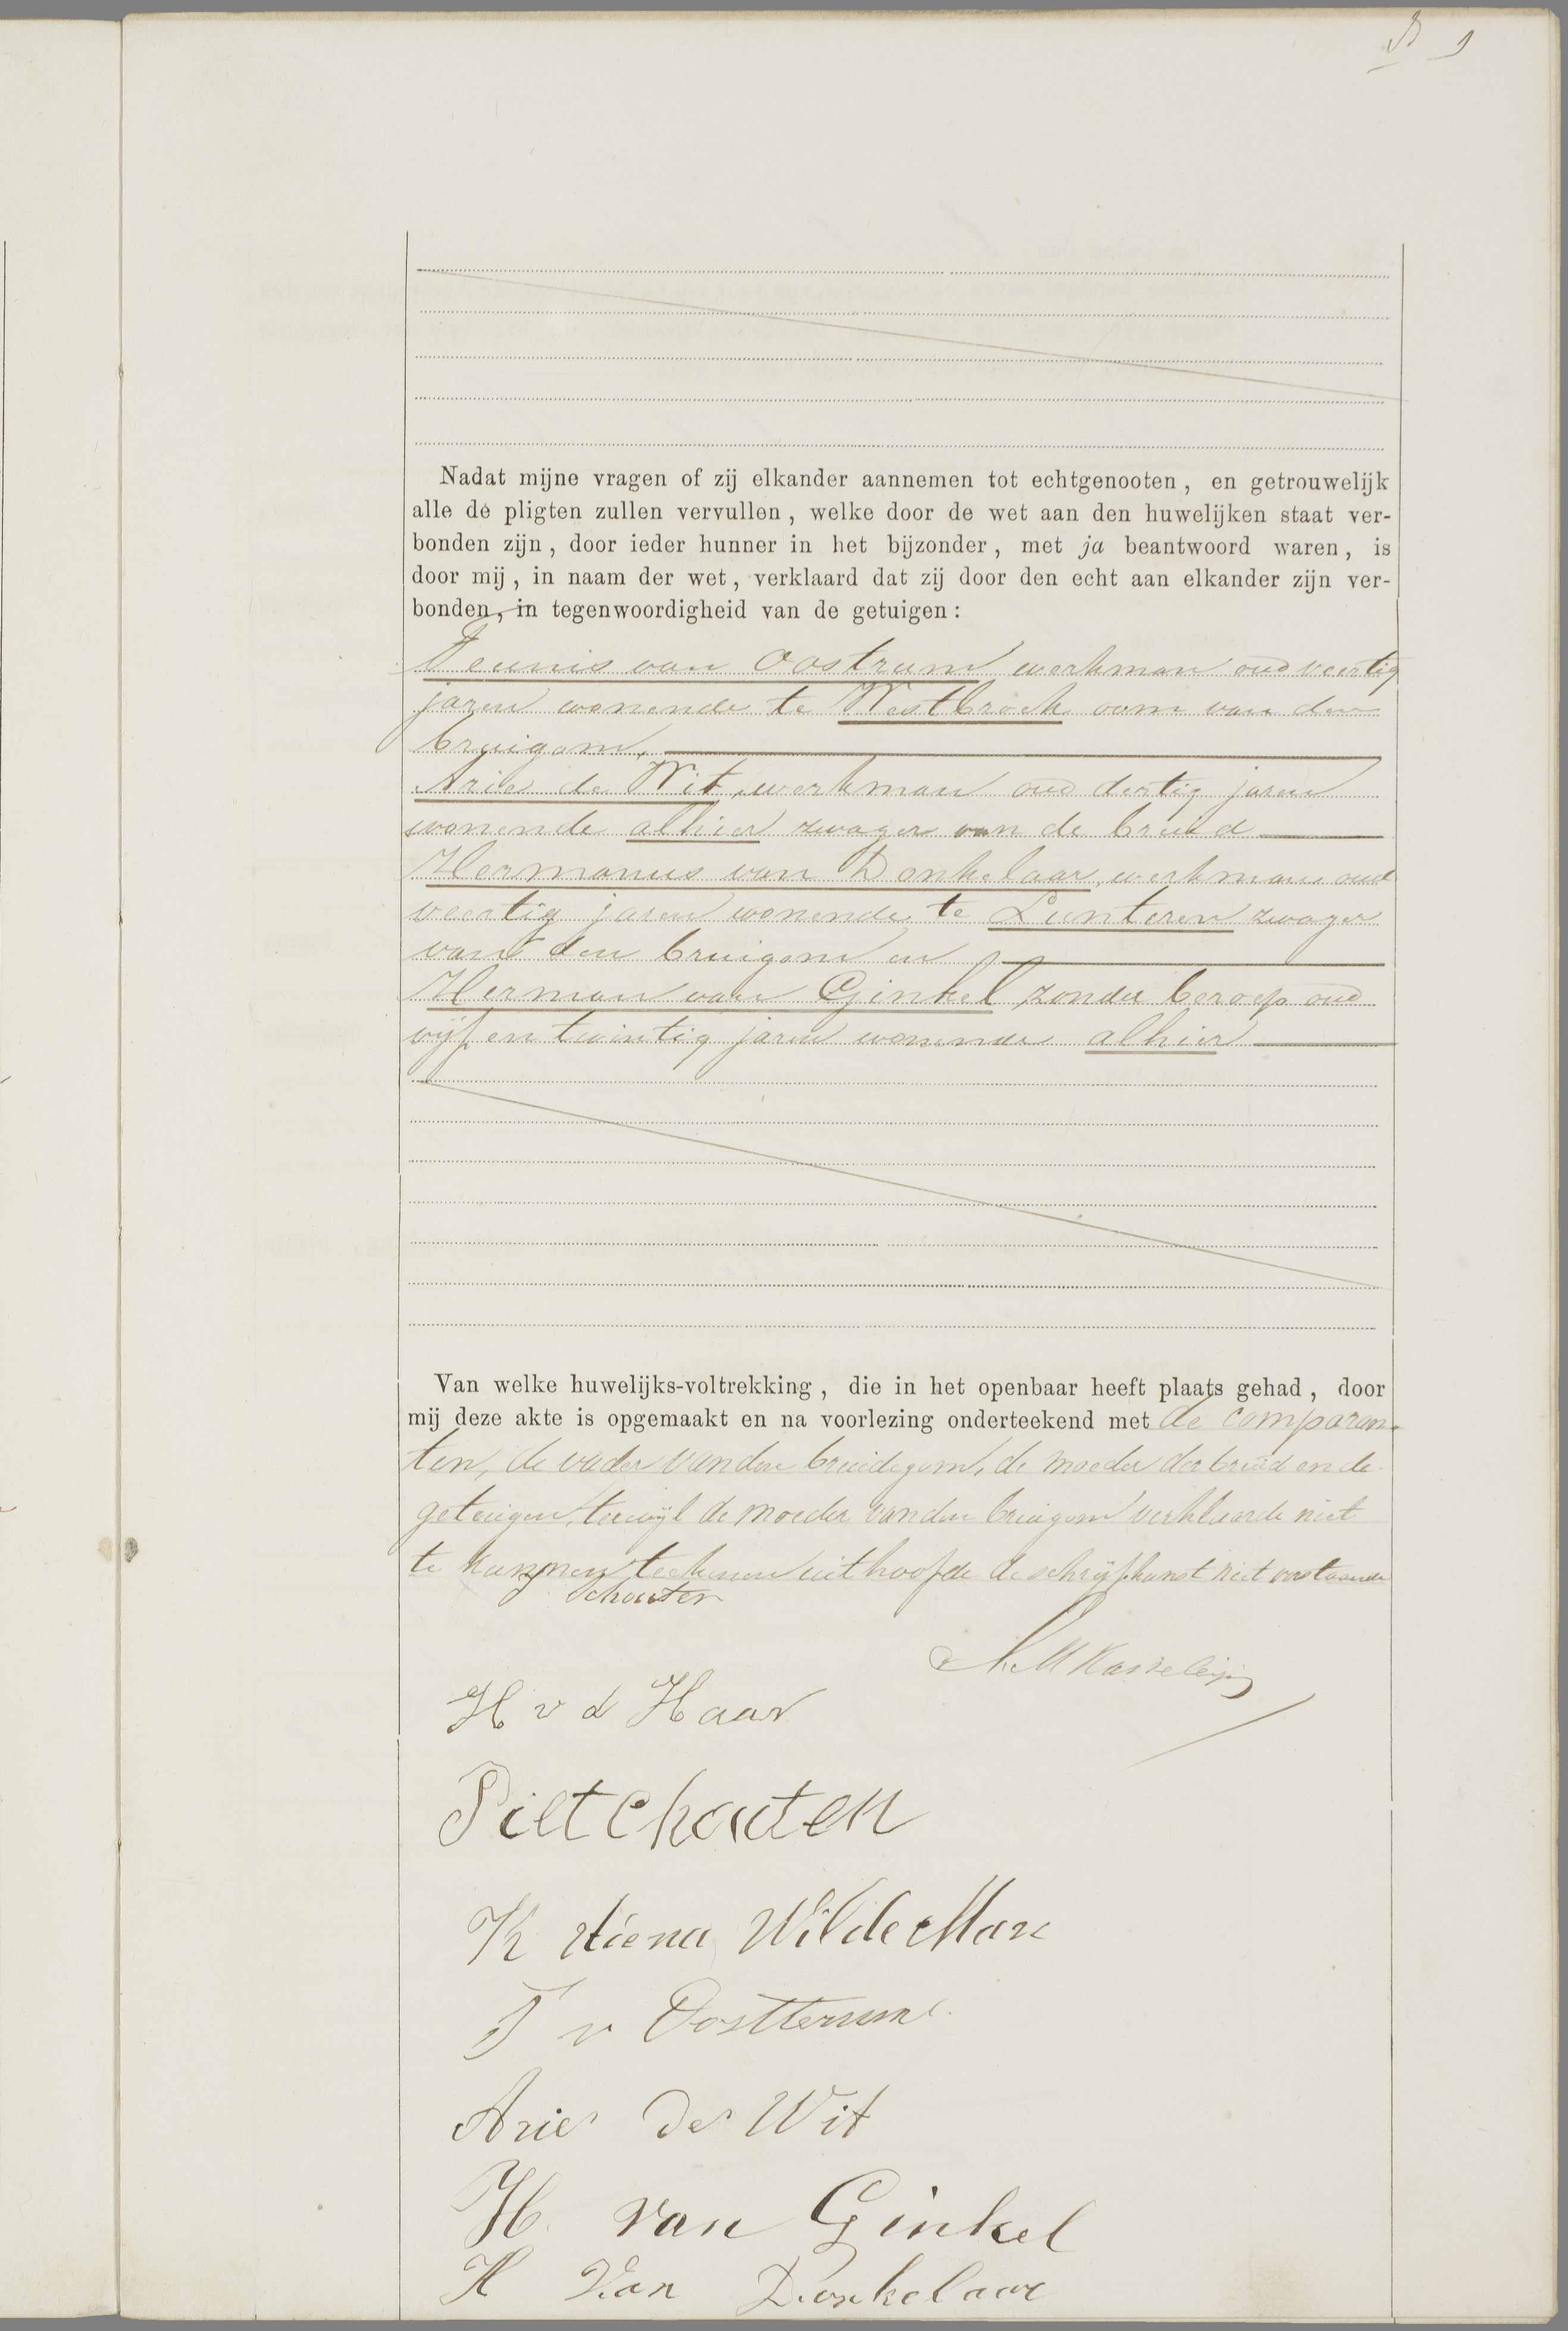 Nadat mijne vragen of zij elkander aannemen tot echtgenooten, en getrouwelijk
alle de pligten zullen vervullen, welke door de wet aan den huwelijken staat ver-
bonden zijn, door ieder hunner in het bijzonder, met ja beantwoord waren, is
door mij, in naam der wet, verklaard dat zij door den echt aan elkander zijn ver-
bonden, in tegenwoordigheid van de getuigen:
Teunis van Oostrum werkman oud veertig
jaren wonende te Westbroek oom van den
bruigom,
Arie de Wit, werkman oud dertig jaren
wonende alhier zwager van de bruid
Hermanus van Donkelaar, werkman oud
veertig jaren wonende te Lunteren zwager
van den bruigom en
Herman van Ginkel, zonder beroep oud
vijf en twintig jaren wonende alhier
Van welke huwelijks-voltrekking, die in het openbaar heeft plaats gehad, door
mij deze akte is opgemaakt en na voorlezing onderteekend met de comparan-
ten, de vader van den bruidegom, de moeder der bruid en de
getuigen, terwijl de moeder van den bruigom verklaarde niet
te kunnen teekenen uit hoofde de schrijfkunst niet verstaande
Schouten
H v d Haar
Piet chouten
K Miena Wildeman
T v Oostterum
Arie de Wit
H. van Ginkel
H Van Donkelaar